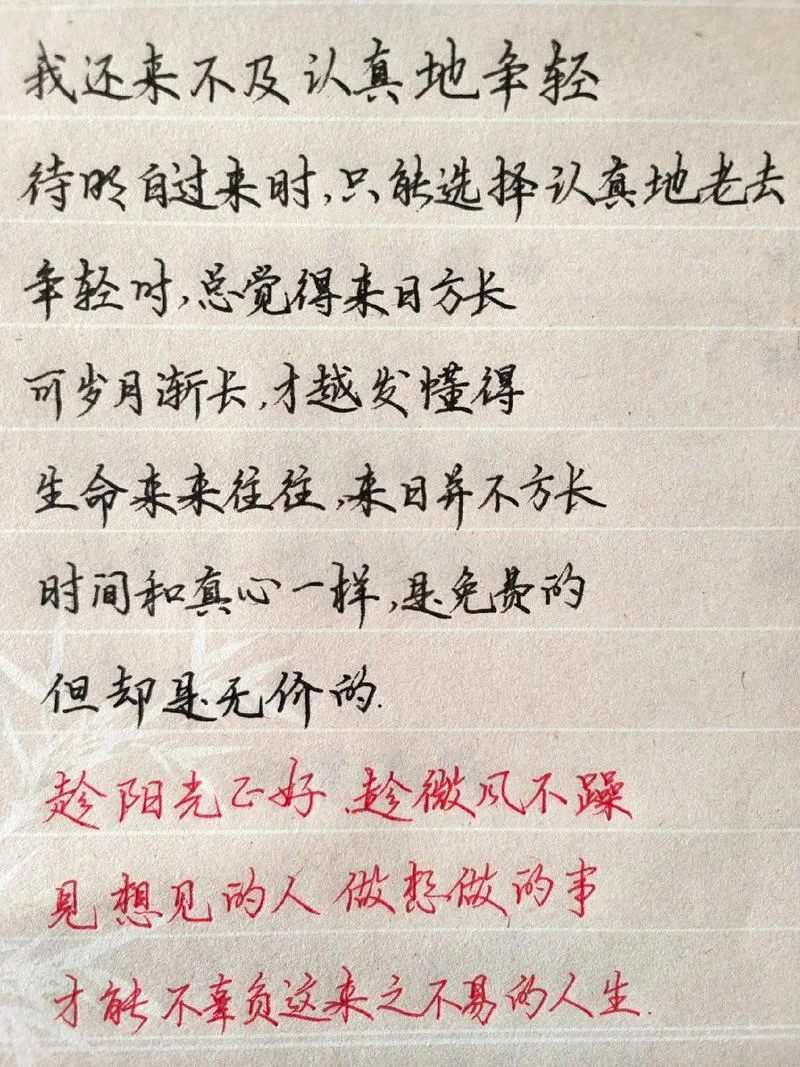 我还来不及认真地年轻
待明白过来时,只能选择认真地老去
年轻时,总觉得来日方长
可岁月渐长,才越发懂得
生命来来往往,来日并不方长
时间和真心一样,是免费的
但却是无价的.
趁阳光正好,趁微风不躁
见想见的人 做想做的事
才能不辜负这来之不易的人生.